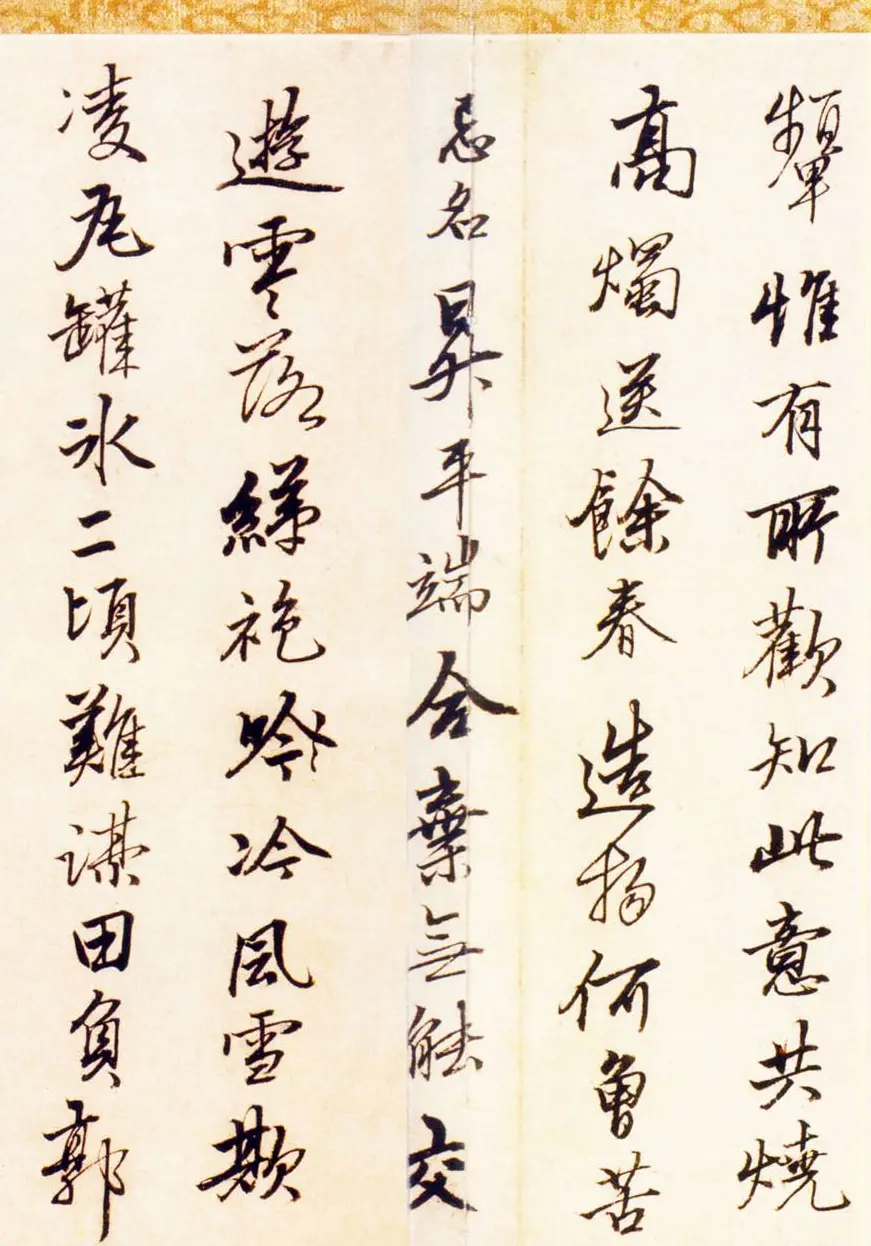 顰惟有所歡知此意共燒
高燭送餘春造物何曾苦
忌名昇平端合棄無能交
遊零落綈袍吟冷風雪欺
凌瓦罐冰二頃難謀田負郭